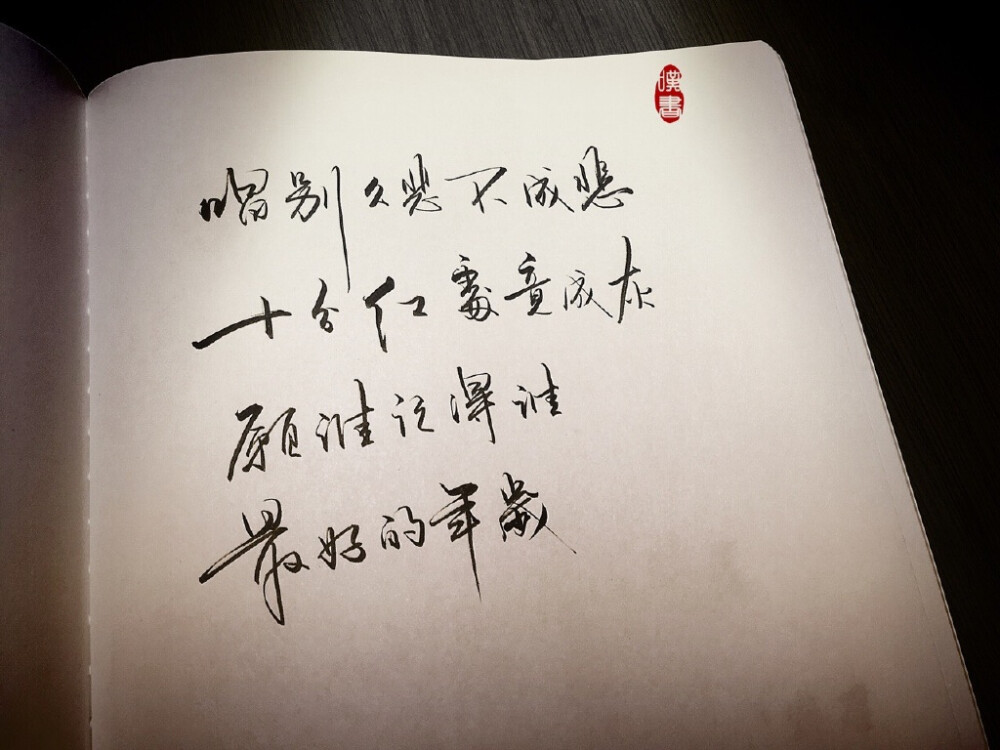 漢書
唱别久悲不成悲
十分红處竟成灰
願谁记得谁
最好的年歲